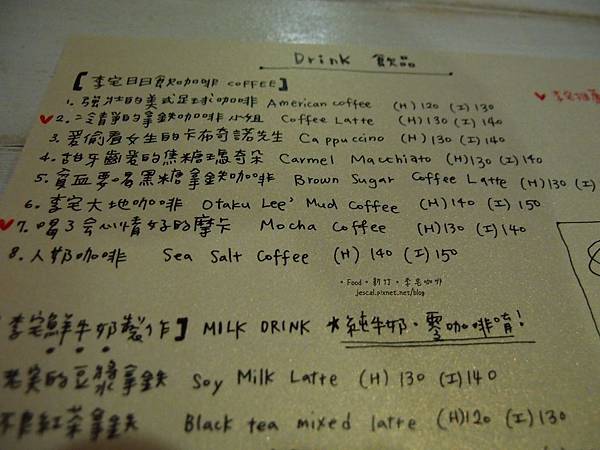 Drink 飲品
【李宅日日飲咖啡 COFFEE】
1. 強壯的美式足球咖啡 American coffee (H) 120 (I) 130
♥2. 二清單的拿鐵咖啡小姐 Coffee Latte (H) 130 (I) 140
3. 愛偷看女生的卡布奇諾先生 Cappuccino (H) 130 (I) 140
4. 甜牙齒愛的焦糖瑪奇朵 Carmel Macchiato (H) 130 (I) 140
5. 貧血要喝黑糖拿鐵咖啡 Brown Sugar Coffee Latte (H) 130 (I)
6. 李宅大地咖啡 Otaku Lee' Mud Coffee (H) 140 (I) 150
♥7. 喝了会心情好的摩卡 Mocha Coffee (H) 130 (I) 140
8. 人奶咖啡 Sea Salt Coffee (H) 140 (I) 150
• Food • 新竹 • 李宅咖啡
jescal.pixnet.net/blog
李宅鮮牛奶製作】 MILK DRINK ★純牛奶・零咖啡唷!
老实的豆漿拿鐵 Soy Milk Latte (H) 130 (I) 140
不良紅茶拿鉄 Black tea mixed latte (H) 120 (I) 130